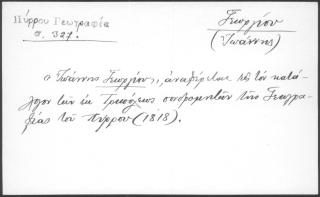 Πύρρου Γεωγραφία
σ. 327.
Γεωργίου
(Ἰωάννης)
ὁ Ἰωάννης Γεωργίου, ἀναφέρεται εἰς τὸν κατά-
λογον τῶν ἐκ Τριπόλεως συνδρομητῶν τῆς Γεωγρα-
φίας τοῦ Πύρρου (1818).